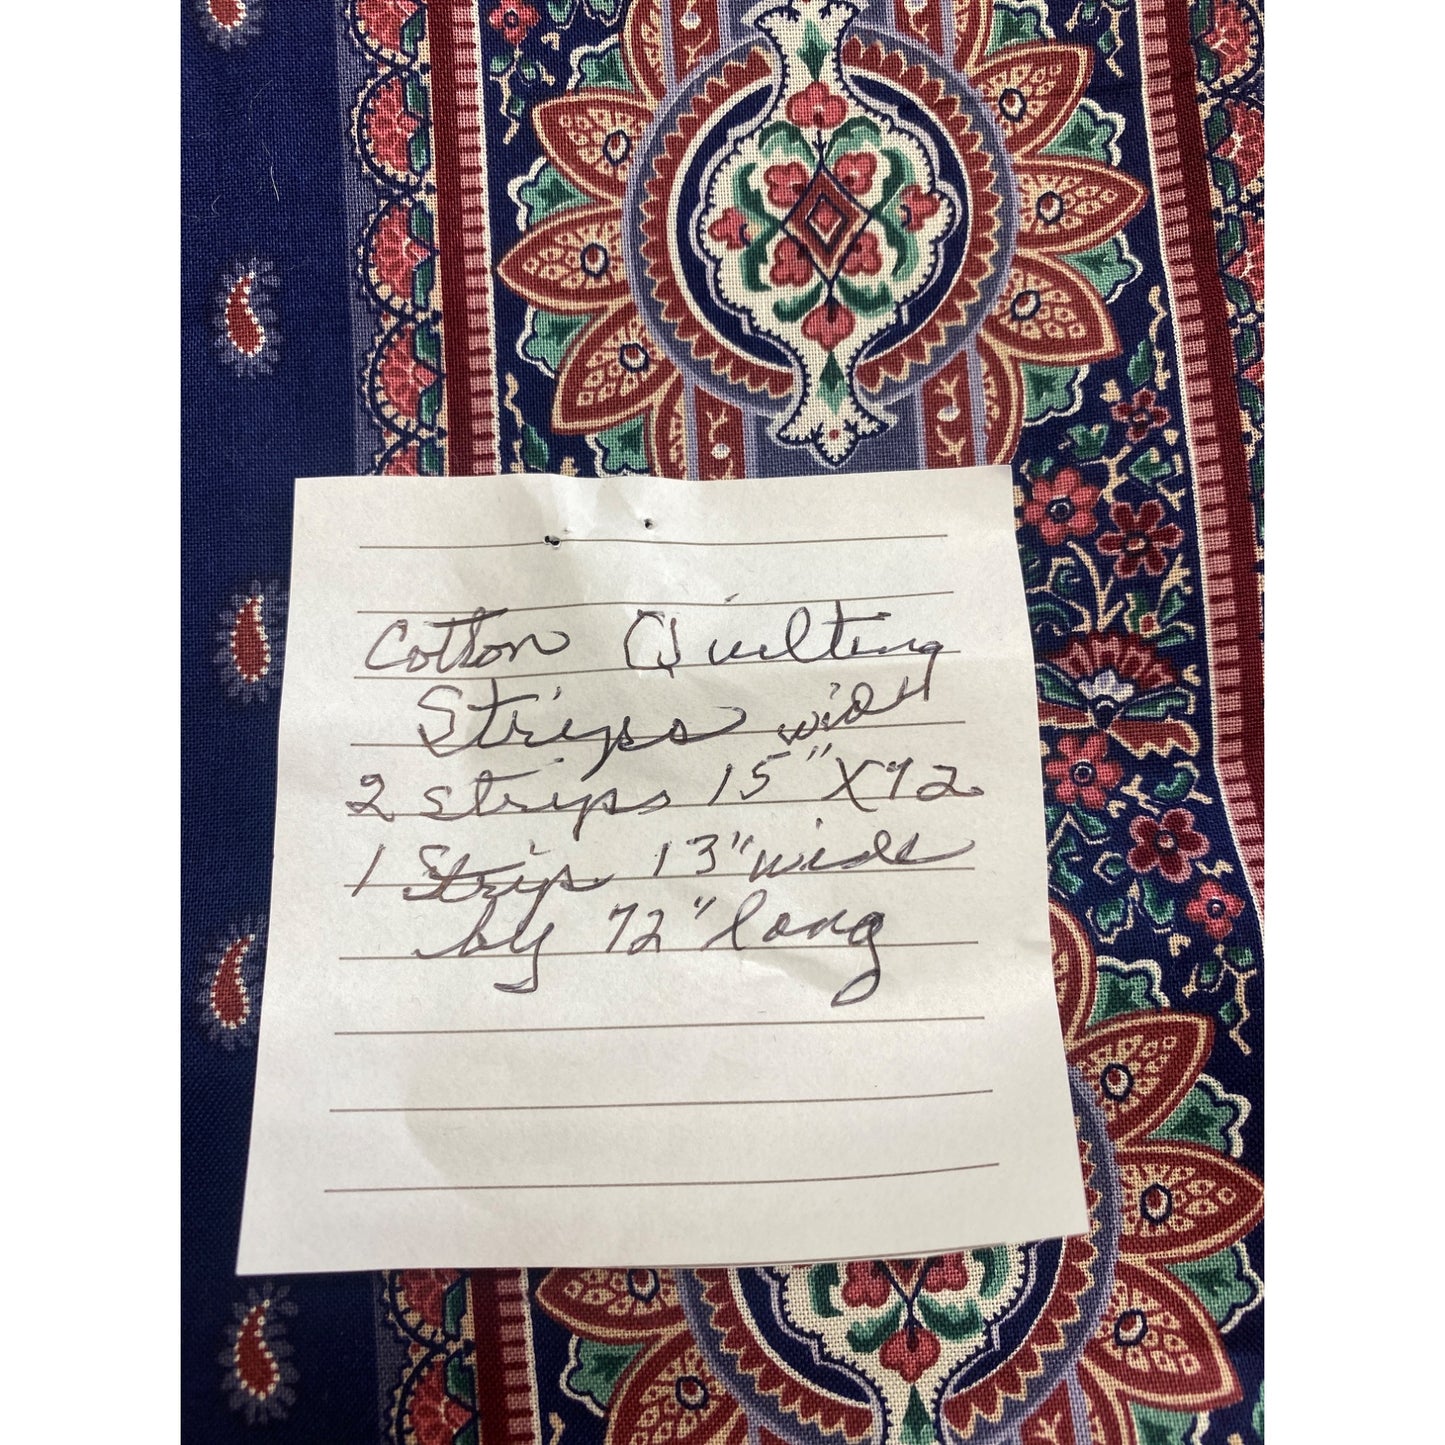 Cotton Quilting
Strips with
2 strips 15" X 72
1 Strip 13" wide
by 72" long